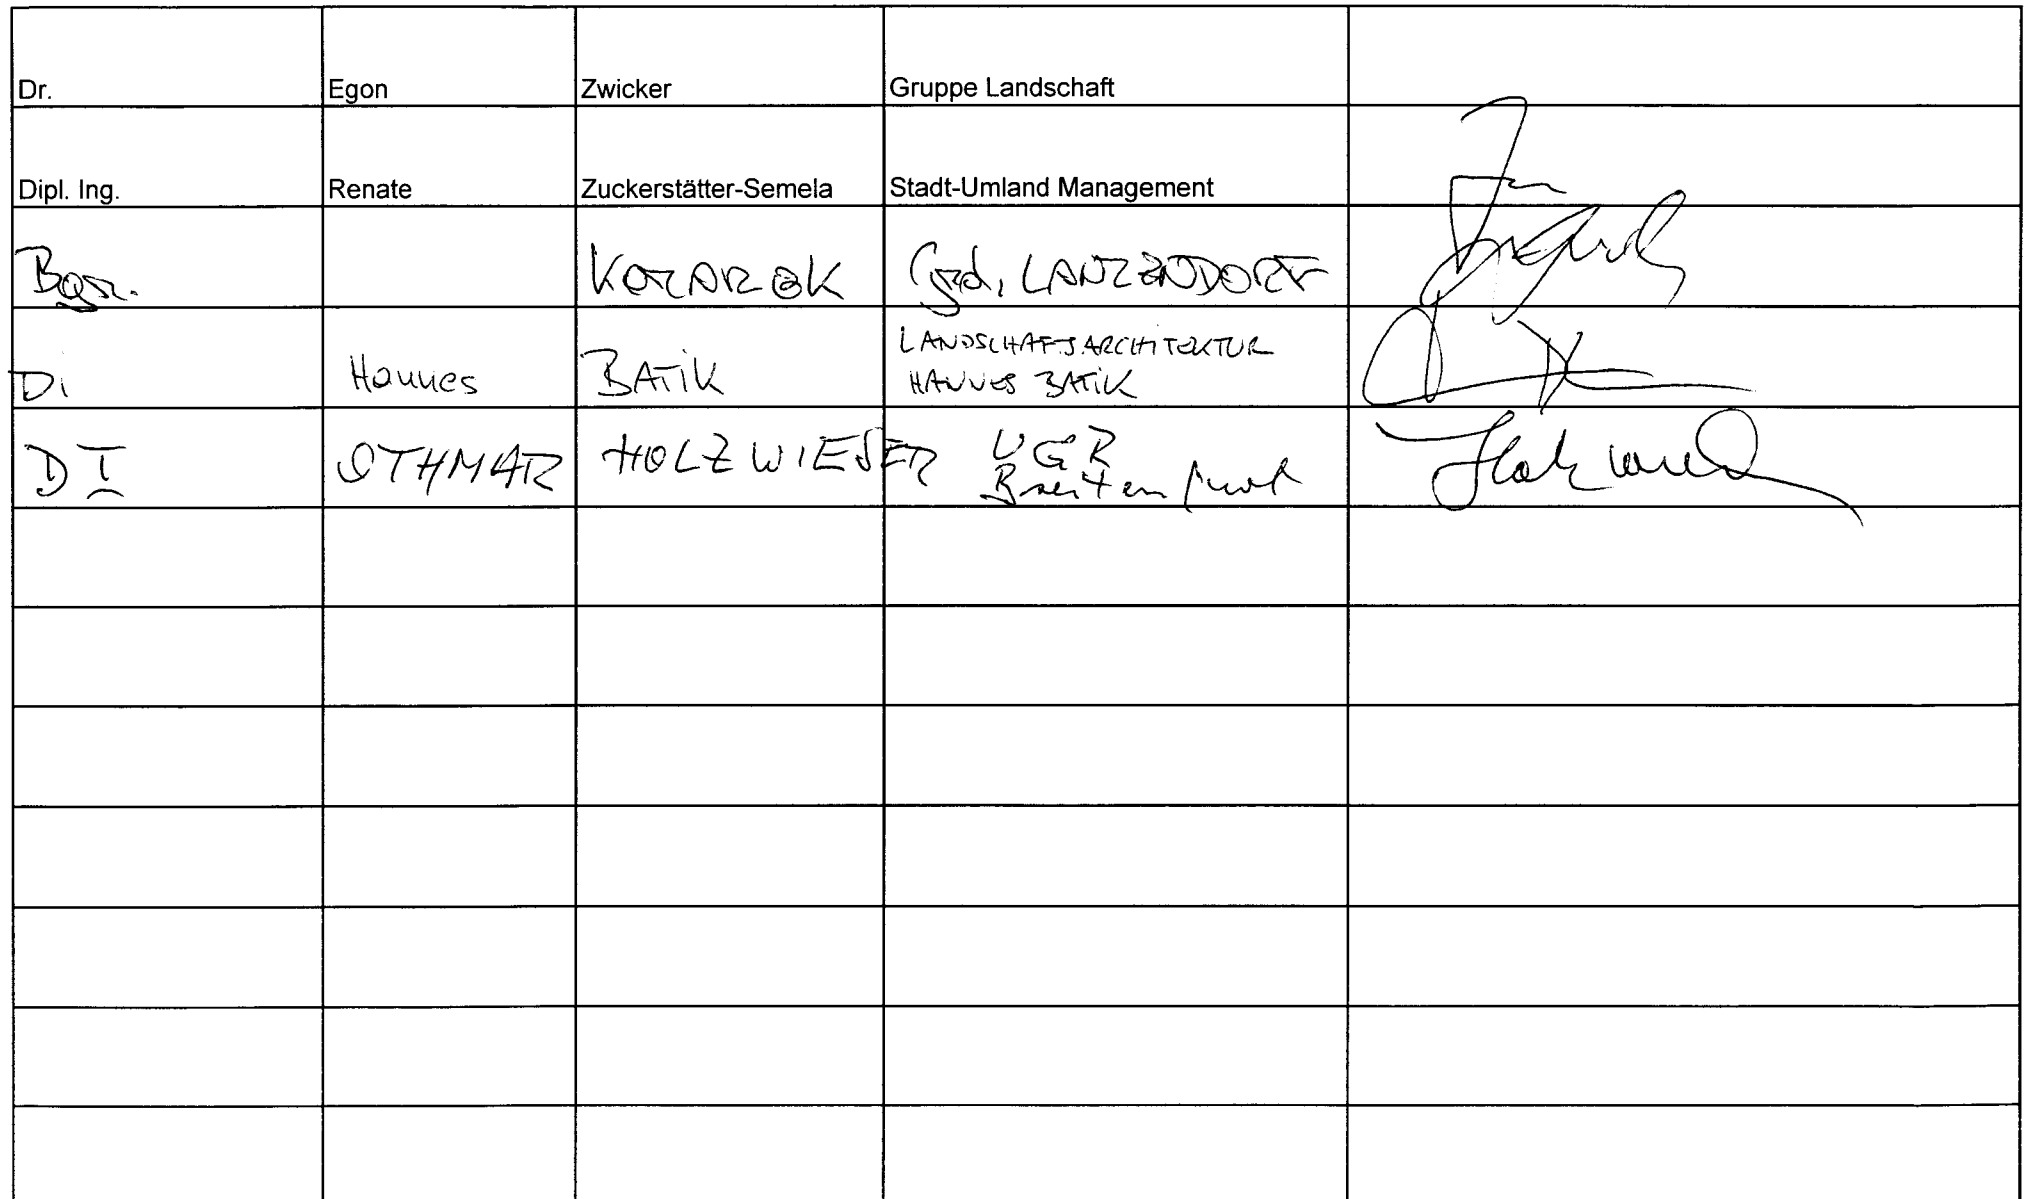 Dr. Egon Zwicker Gruppe Landschaft
Dipl. Ing. Renate Zuckerstätter-Semela Stadt-Umland Management
Bgm. Gmd. LANZENDORF
DI Hannes BATIK LANDSCHAFTSARCHITEKTUR
HANNES BATIK
DI OTHMAR HOLZWIESER UGR
Breitenfurt